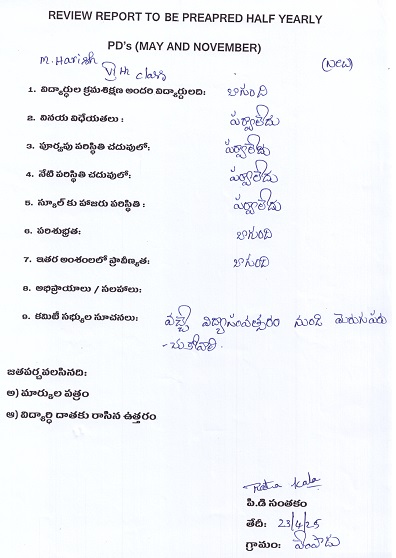 REVIEW REPORT TO BE PREAPRED HALF YEARLY
PD's (MAY AND NOVEMBER)
(New)
M. Harish
VI th class
1. విద్యార్ధుల క్రమశిక్షణ అందరి విద్యార్ధులది: బాగుంది
2. వినయ విధేయతలు : పర్వాలేదు
3. పూర్వపు పరిస్థితి చదువులో: పర్వాలేదు
4. నేటి పరిస్థితి చదువులో: పర్వాలేదు
5. స్కూల్ కు హాజరు పరిస్థితి : పర్వాలేదు
6. పరిశుభ్రత: బాగుంది
7. ఇతర అంశంలలో ప్రావీణ్యత: బాగుంది
8. అభిప్రాయాలు / సలహాలు:
9. కమిటీ సభ్యుల సూచనలు: వచ్చే విద్యాసంవత్సరం నుండి మెరుగుపరు
-చుకోవాలి.
జతపర్చవలసినది:
అ) మార్కుల పత్రం
ఆ) విద్యార్ధి దాతకు రాసిన ఉత్తరం
Kala
పి.డి సంతకం
తేది: 23/4/25
గ్రామం: